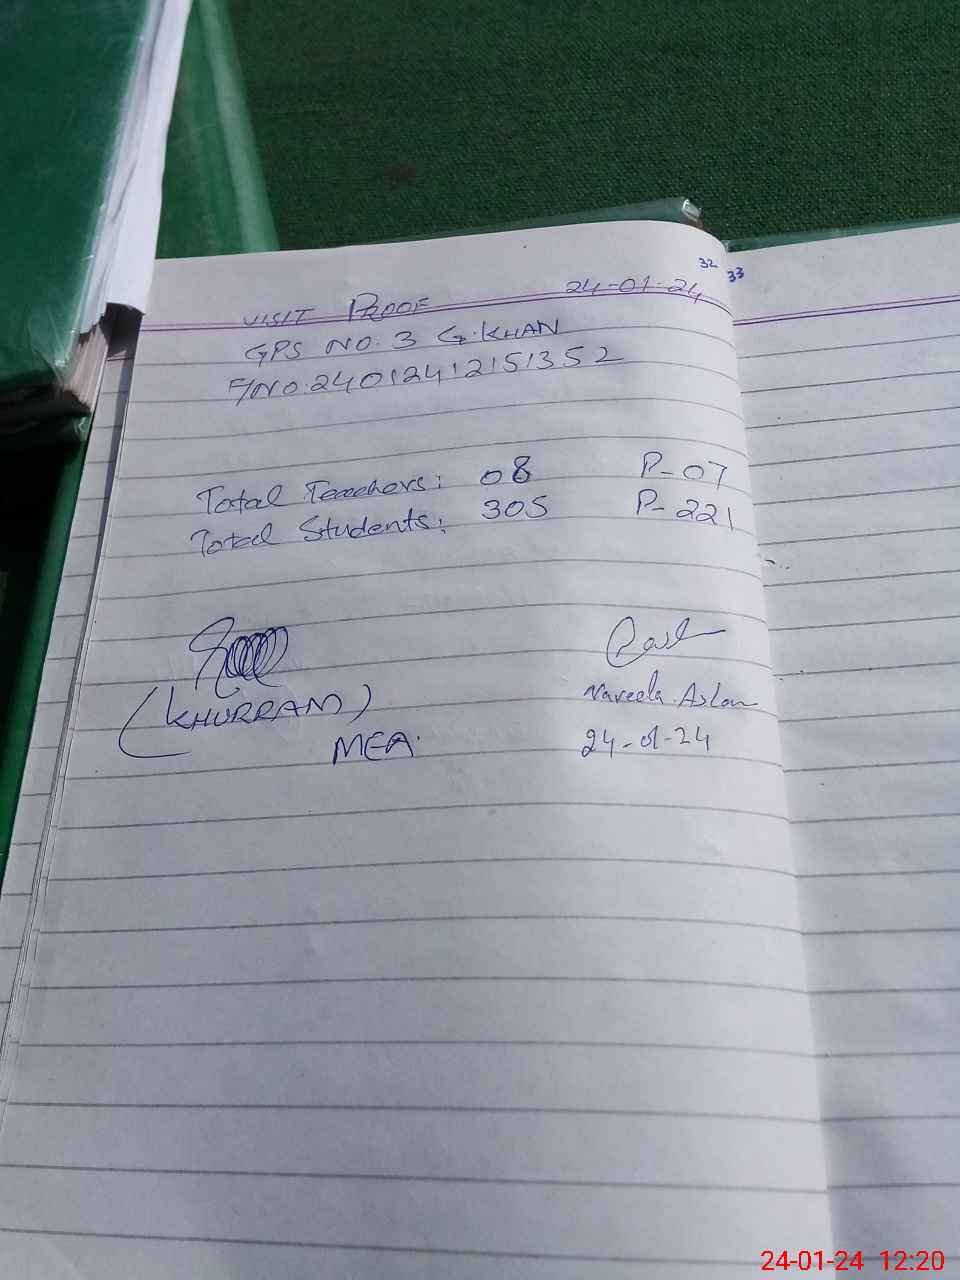 32 33
VISIT PROOF 24-01-24
GPS NO. 3 G.KHAN
F/NO.24012412151352
Total Teachers: 08 P-07
Total Students: 305 P-221
(KHURRAM) Nareela Aslam
MEA. 24-01-24
24-01-24 12:20